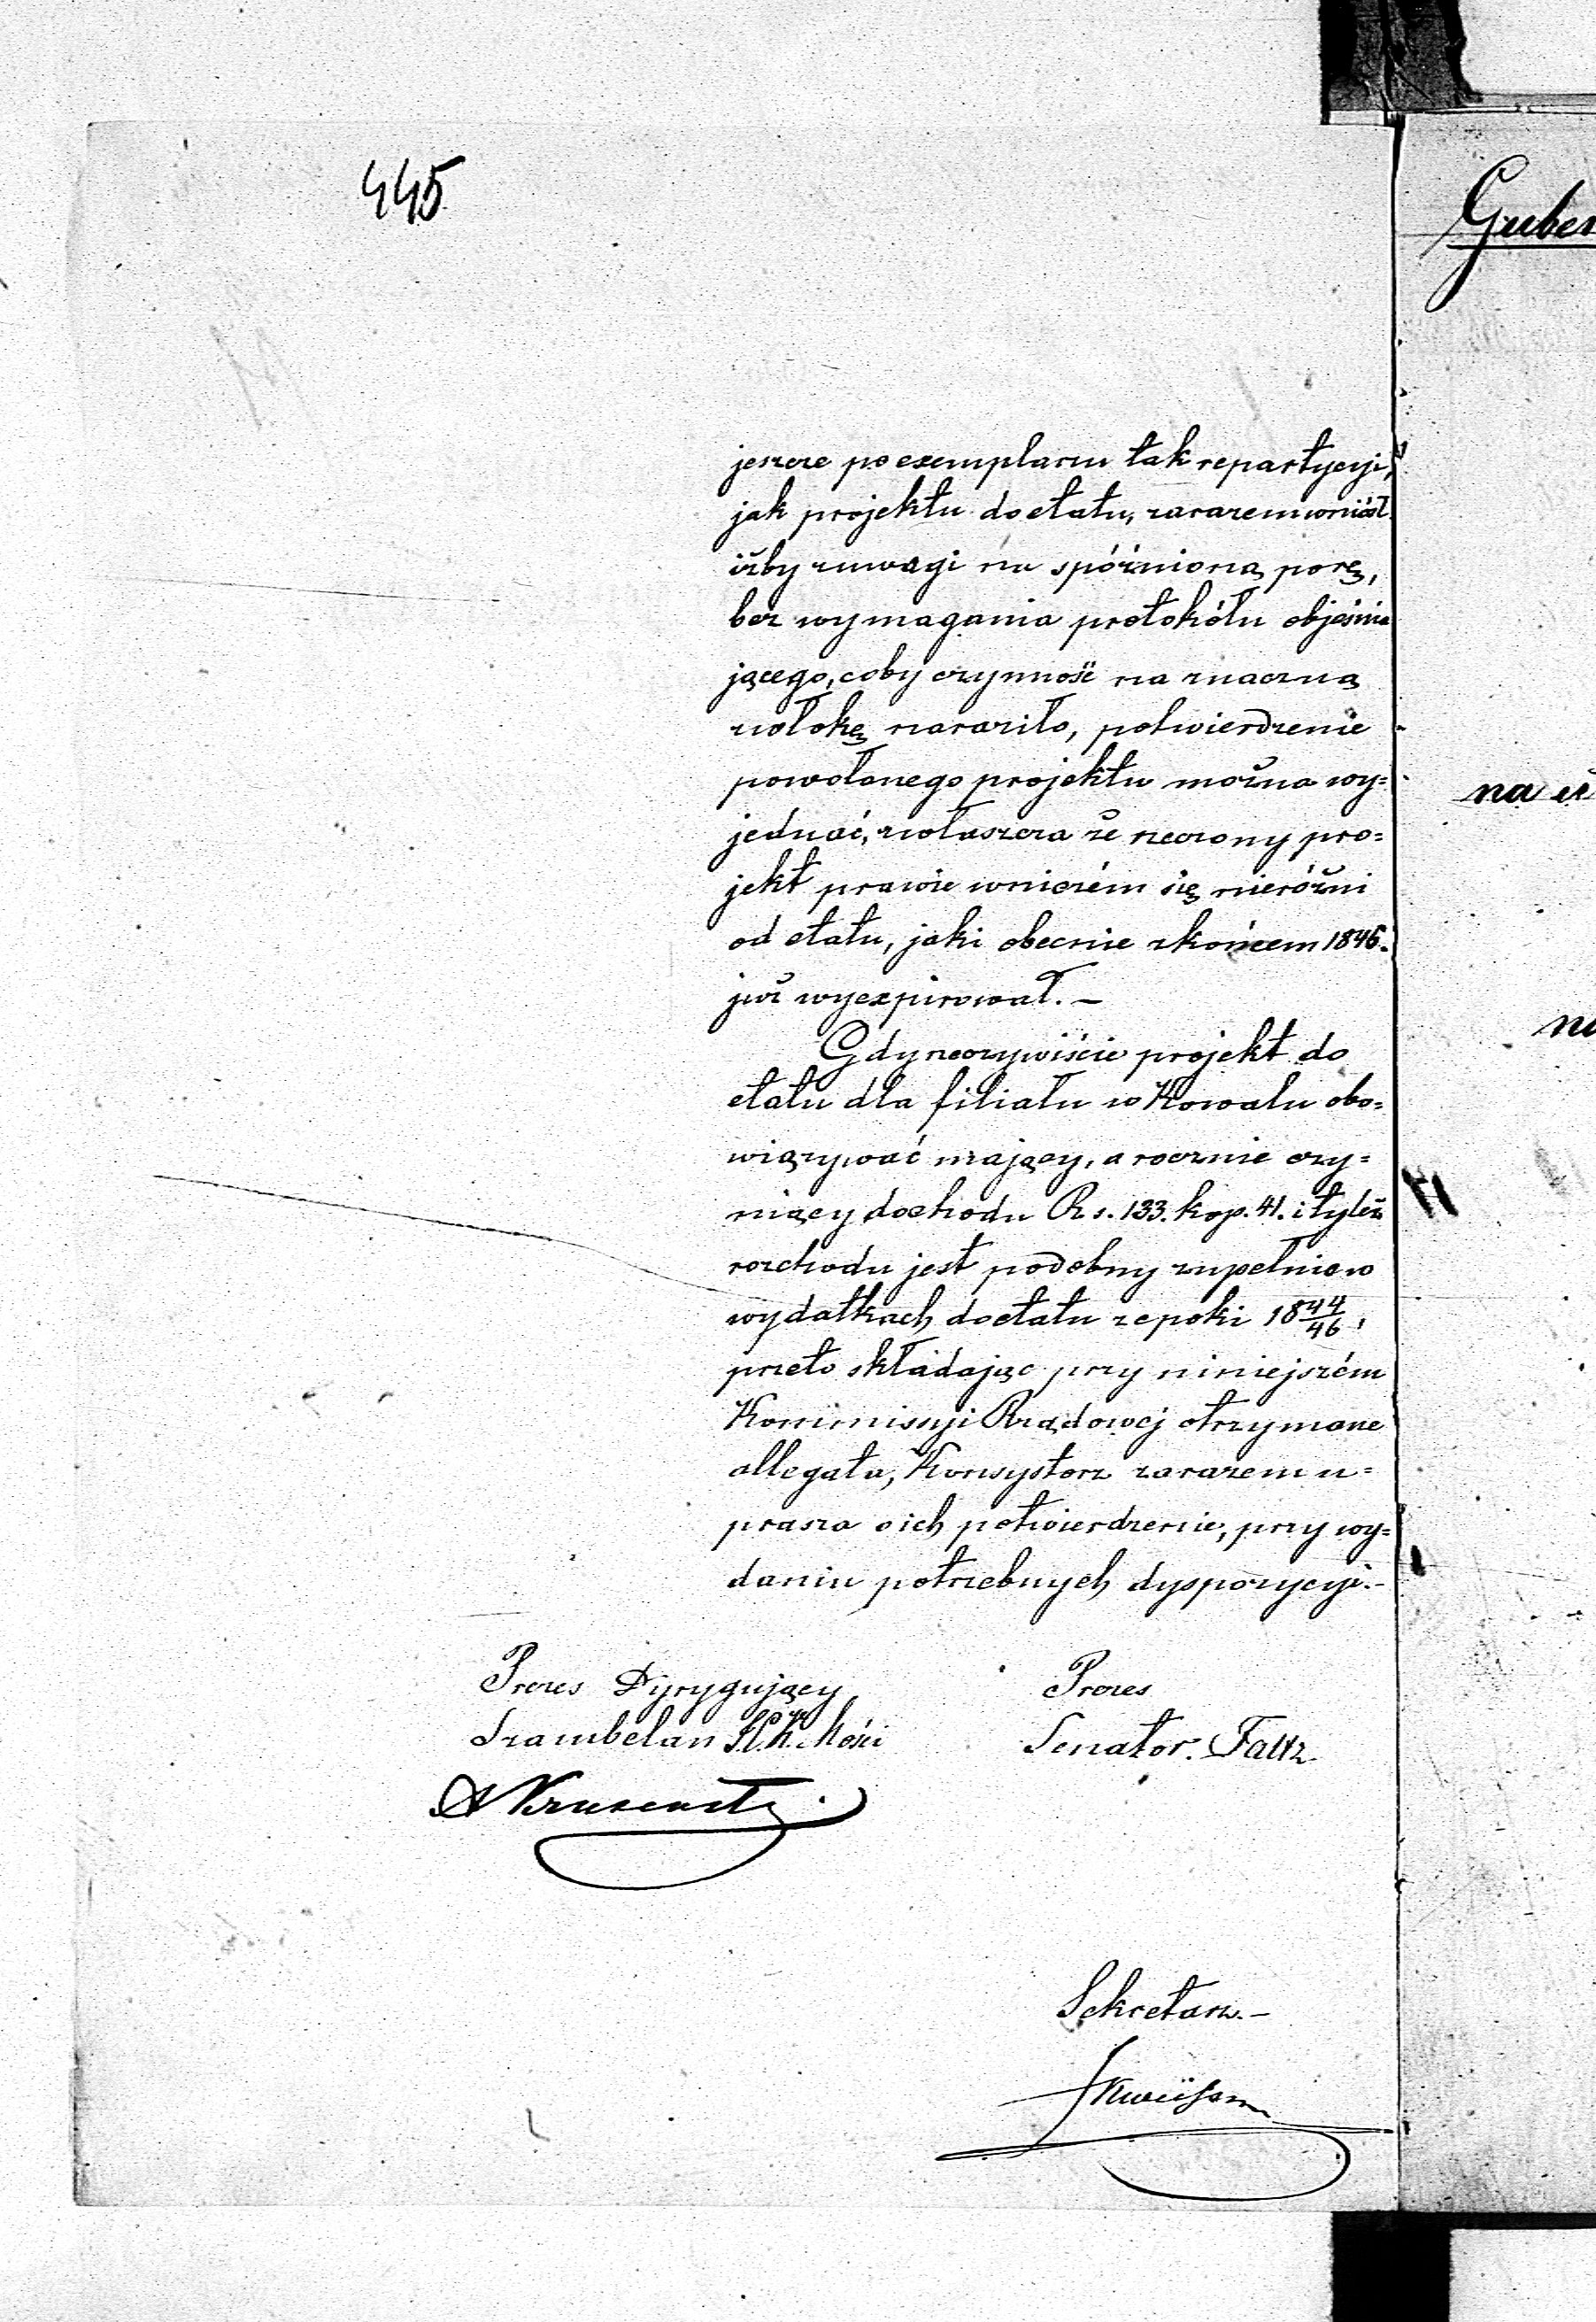 445
jeszcze po exemplarzu tak repartycyi,
jak projektu do etatu, zarazem wniósł
iżby z uwagi na spóźnioną porę,
bez wymagania protokółu objeśnia
jącego, coby czynność na znaczną
zwłokę naraziło, potwierdzenie
powołanego projektu można wy=
jednać, zwłaszcza że rzeczony pro=
jekt prawie w niczém się nieróżni
od etatu, jaki obecnie z końcem 1846.
już wyexpirował. —
Gdy rzeczywiście projekt do
etatu dla filiału w Kowalu obo=
wiązywać mający, a rocznie czy=
niący dochodu Rs. 133. kop. 41. i tyleż
rozchodu jest podobny zupełnie w
wydatkach do etatu z epoki 18 44/46,
przeto składając przy niniejszém
Kommissyi Rządowéj otrzymane
allegata, Konsystorz zarazem u=
prasza o ich potwierdzenie, przy wy=
daniu potrzebnych dyspozycyi. -
Prezes Dyrygujący Prezes
Szambelan J.C.K. Mości Senator. Faltz
Sekretarz. —
Guber
na